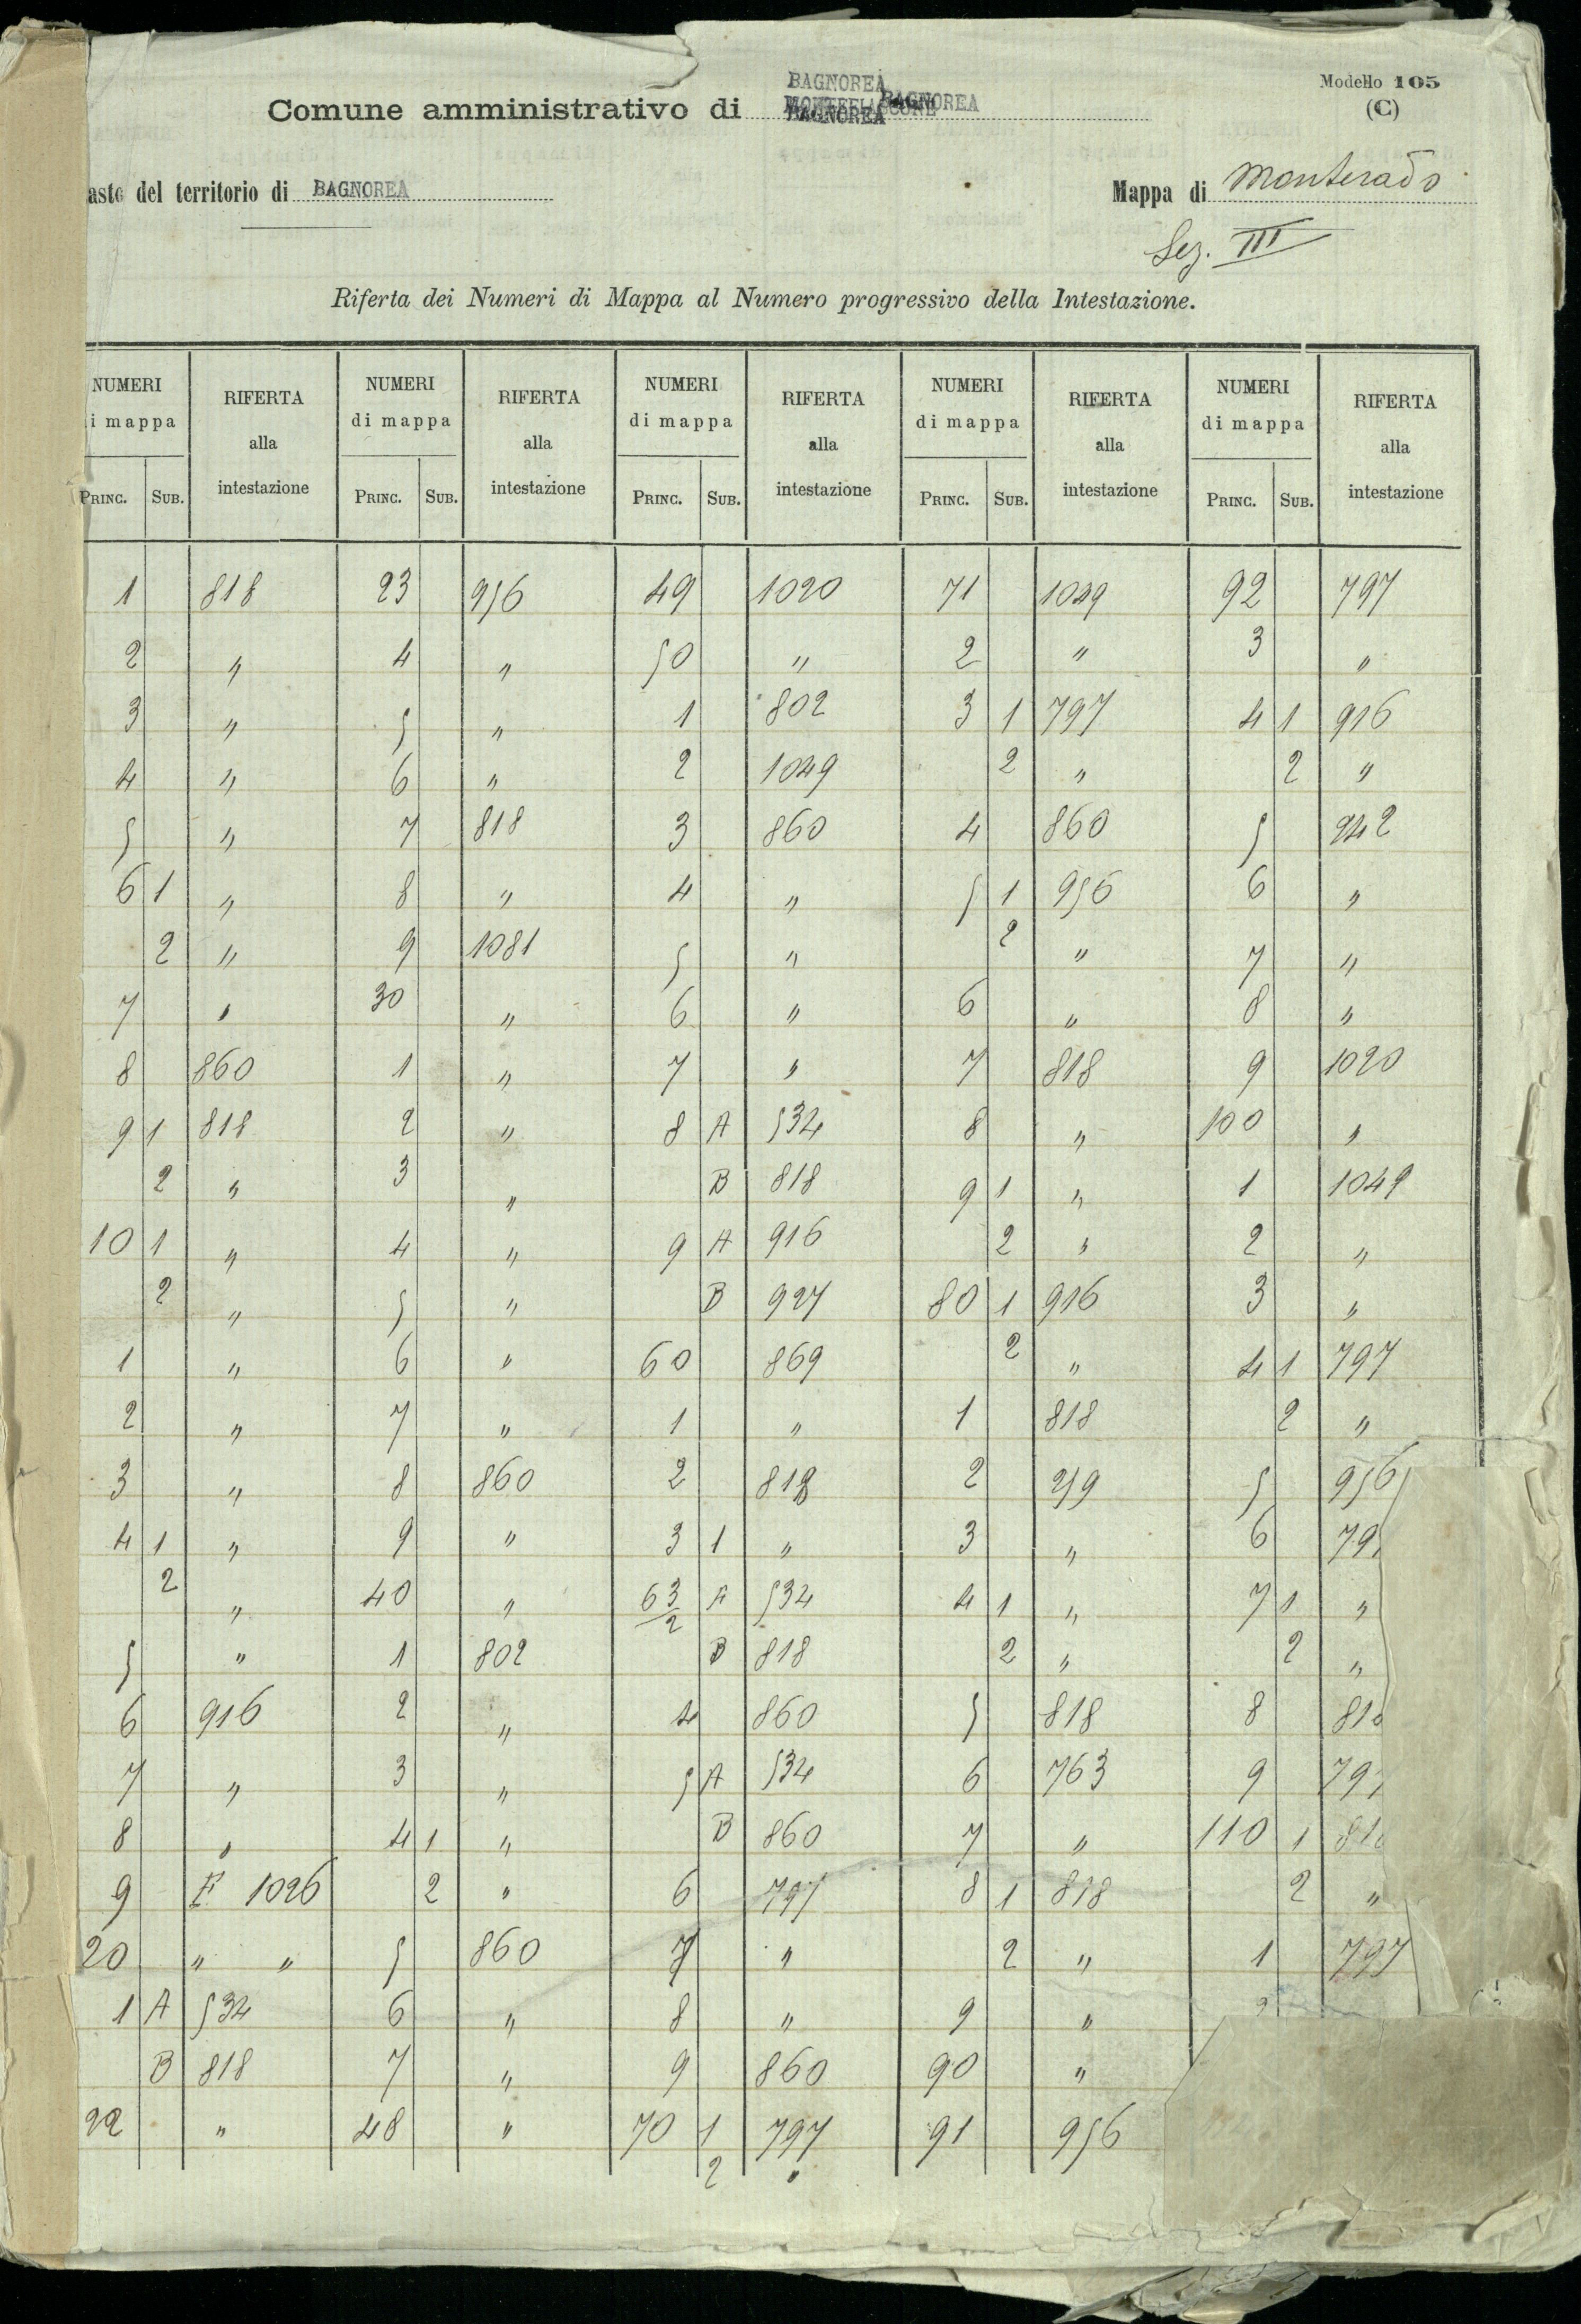 Modello 105
(C)
BAGNOREA
BAGNOREA
Comune amministrativo di BAGNOREA
del territorio di BAGNOREA Mappa di Monterado
Sez. III
Riferta dei Numeri di Mappa al Numero progressivo della Intestazione.
NUMERI RIFERTA NUMERI RIFERTA NUMERI RIFERTA NUMERI RIFERTA NUMERI RIFERTA
di mappa alla di mappa alla di mappa alla di mappa alla di mappa alla
PRINC. SUB. intestazione PRINC. SUB. intestazione PRINC. SUB. intestazione PRINC. SUB. intestazione PRINC. SUB. intestazione
1 818 23 956 49 1020 71 1049 92 797
2 " 4 " 50 " 2 " 3 "
3 " 5 " 1 802 3 1 797 4 1 916
4 " 6 " 2 1049 2 " 2 "
5 " 7 818 3 860 4 860 5 242
6 1 " 8 " 4 " 5 1 956 6 "
2 " 9 1081 5 " 2 " 7 "
7 " 30 " 6 " 6 " 8 "
8 860 1 " 7 " 7 818 9 1020
9 1 818 2 " 8 A 534 8 " 100 "
2 " 3 " B 818 9 1 " 1 1049
10 1 " 4 " 9 A 916 2 " 2 "
2 " 5 " B 927 80 1 916 3 "
1 " 6 " 60 869 2 " 4 1 797
2 " 7 " 1 " 1 818 2 "
3 " 8 860 2 818 2 259 5 956
4 1 " 9 " 3 1 " 3 " 6
2 " 40 " 63/2 A 534 4 1 " 7 1 "
5 " 1 802 B 818 2 " 2 "
6 916 2 " 4 860 5 818 8
7 " 3 " 5 A 534 6 763 9
8 " 4 1 " B 860 7 " 110 1
9 E 1026 2 " 6 797 8 1 818 2 "
20 " " 5 860 7 " 2 " 1 797
1 A 534 6 " 8 " 9 "
B 818 7 " 9 860 90 "
22 " 48 " 70 1 797 91 956
2 "